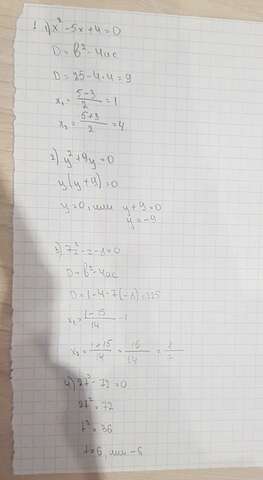 1. 1) x² - 5x + 4 = 0
D = b² - 4ac
D = 25 - 4·4 = 9
x₁ = (5-3)/2 = 1
x₂ = (5+3)/2 = 4
2) y² + 9y = 0
y(y + 9) = 0
y = 0, или y + 9 = 0
y = -9
3) 7z² - z - 8 = 0
D = b² - 4ac
D = 1 - 4·7·(-8) = 225
x₁ = (1-15)/14 - 1
x₂ = (1+15)/14 = 16/14 = 8/7
4) 2t² - 72 = 0
2t² = 72
t² = 36
t = 6, или -6